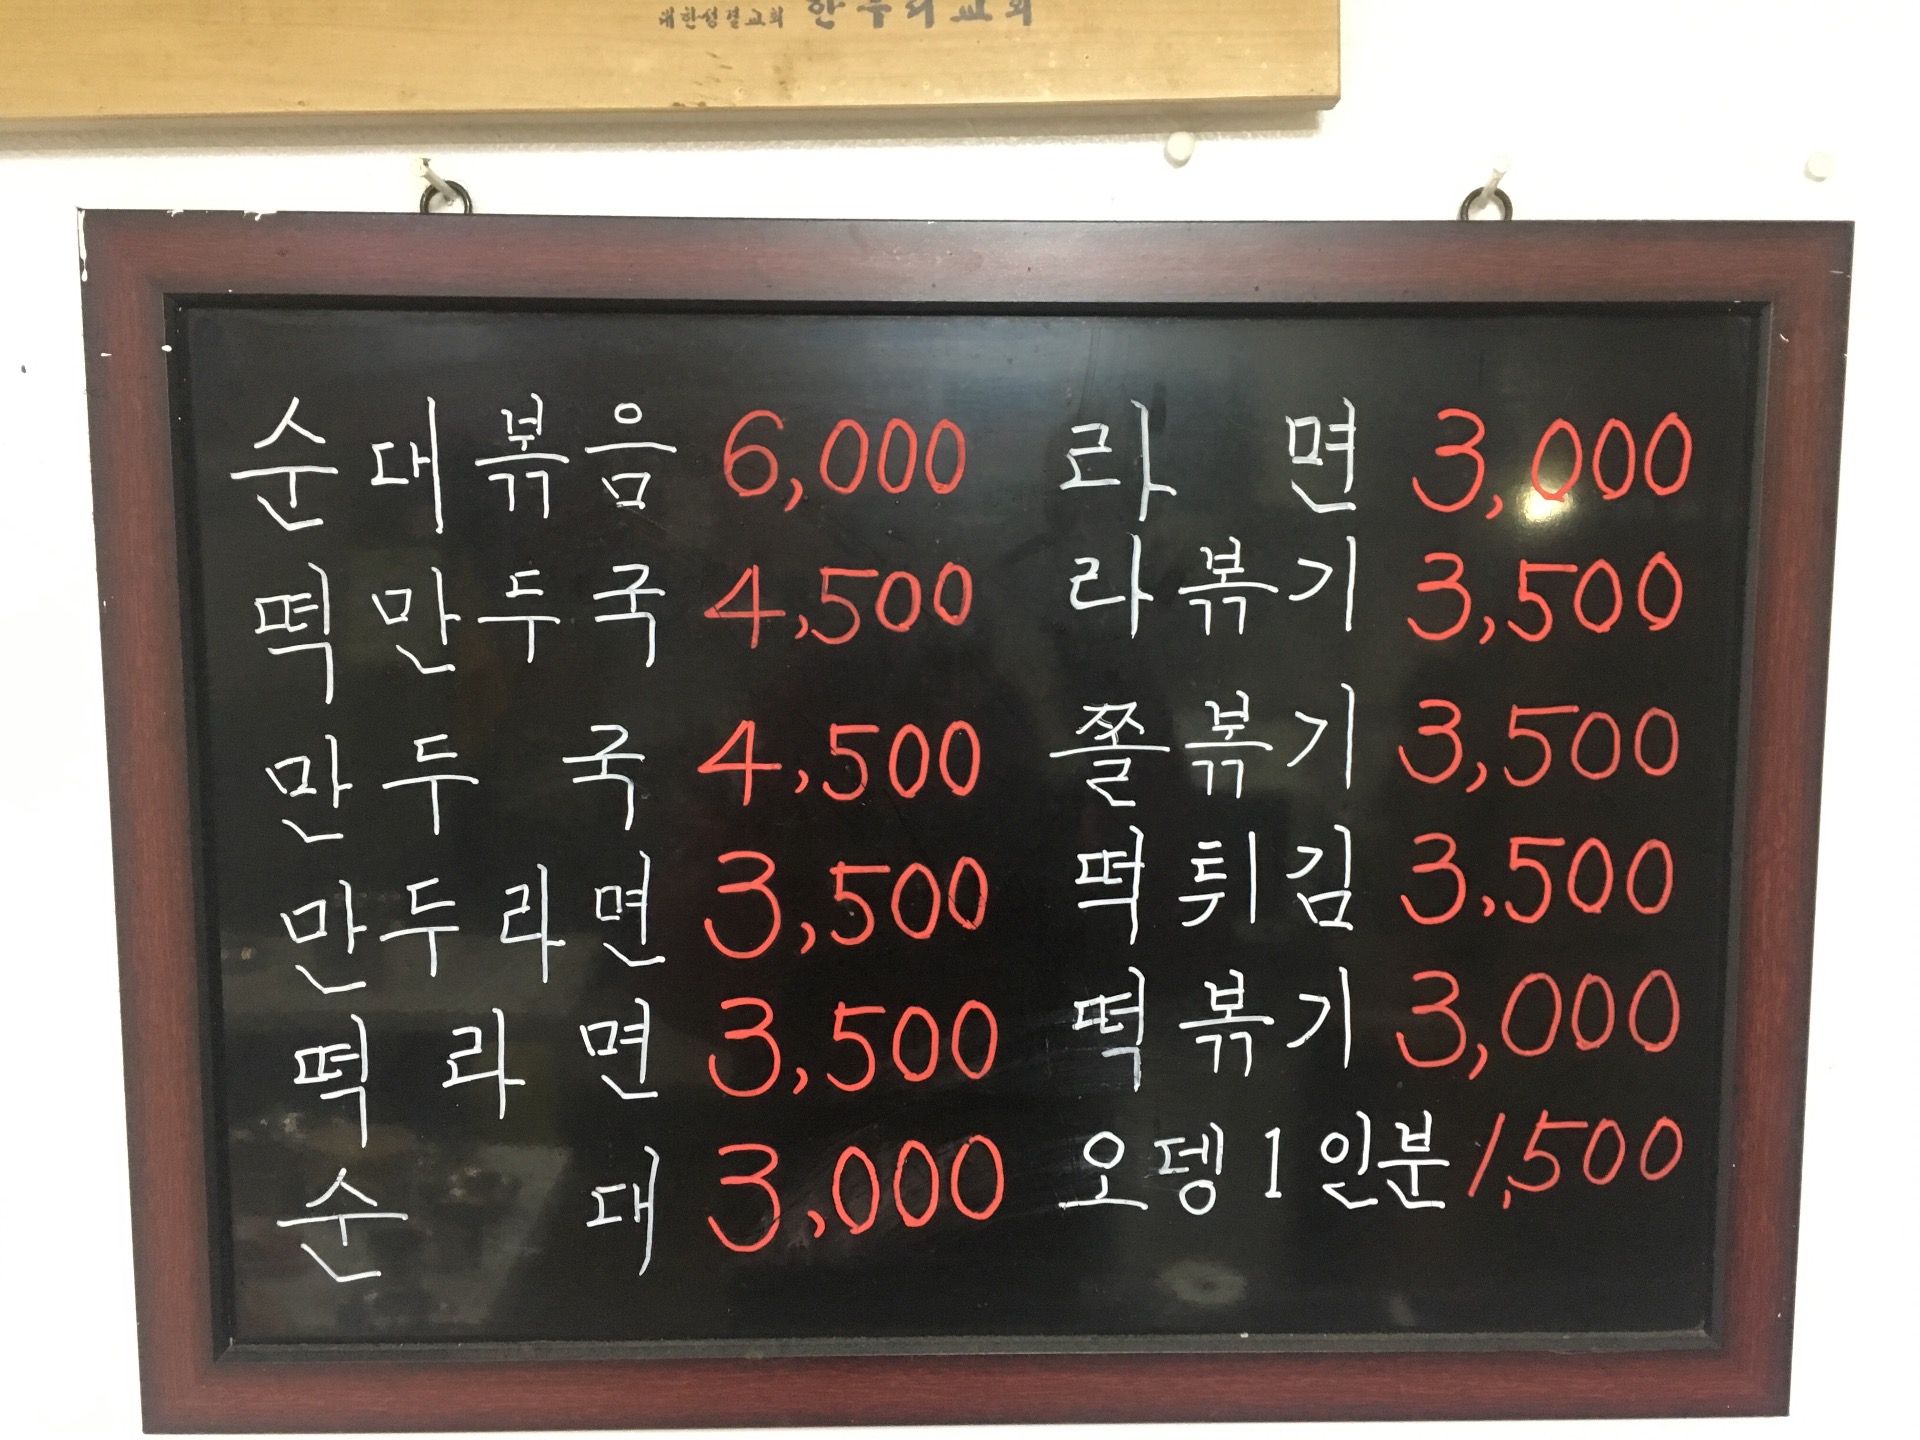 대한성결교회 한누리교회
순대볶음 6,000
떡만두국 4,500
만두국 4,500
만두라면 3,500
떡라면 3,500
순대 3,000
라면 3,000
라볶기 3,500
쫄볶기 3,500
떡튀김 3,500
떡볶기 3,000
오뎅1인분 1,500